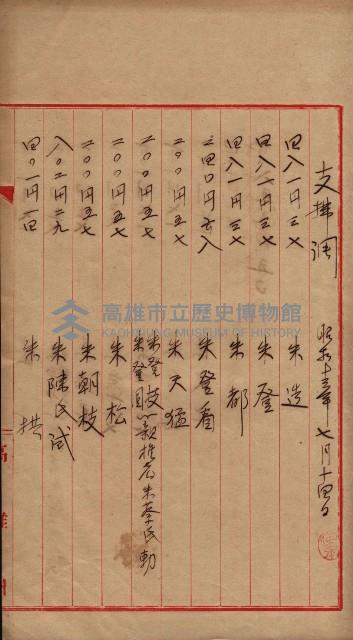 支拂調 昭和十三年七月十四日
四八一円三七 朱造
四八一円三七 朱登
四八一円三七 朱都
二四〇円六八 朱登看
二〇〇円五七 朱天猛
二〇〇円五七 朱登枝 朱登圓 親権者朱蔡氏勤
二〇〇円五七 朱松
二〇〇円五七 朱朝枝
八〇二円二九 朱陳氏試
四〇一円一四 朱
高雄市立歷史博物館
KAOHSIUNG MUSEUM OF HISTORY
高雄州